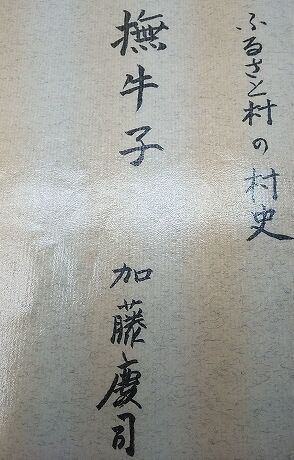 ふるさと村の村史
撫牛子
加藤慶司